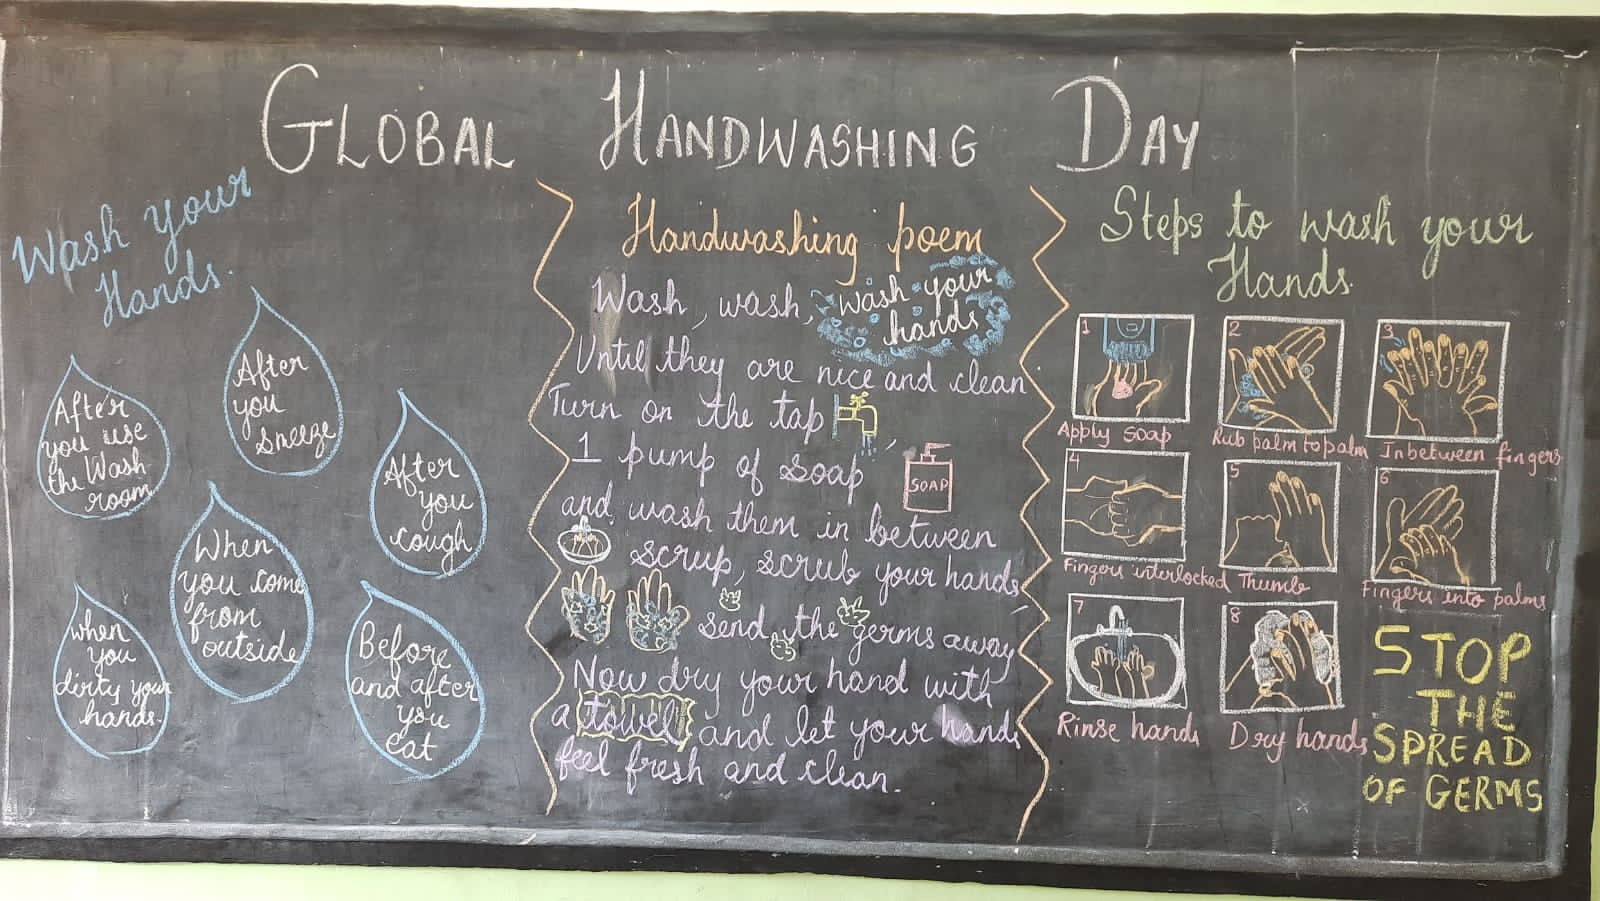 GLOBAL HANDWASHING DAY
Wash your
Hands.
After
you
sneeze
After
you use
the Wash
room
After
you
cough
When
you come
from
outside
when
you
dirty your
hands.
Before
and after
you
eat
Handwashing poem
Wash, wash, wash your
hands
Until they are nice and clean
Turn on the tap
1 pump of soap
SOAP
and wash them in between
scrup, scrub your hands,
send the germs away
Now dry your hand with
a towel and let your hands
feel fresh and clean.
Steps to wash your
Hands.
1
Apply soap
2
Rub palm to palm
3
Inbetween fingers
4
Fingers interlocked
5
Thumb
6
Fingers into palms
7
Rinse hands
8
Dry hands
STOP
THE
SPREAD
OF GERMS